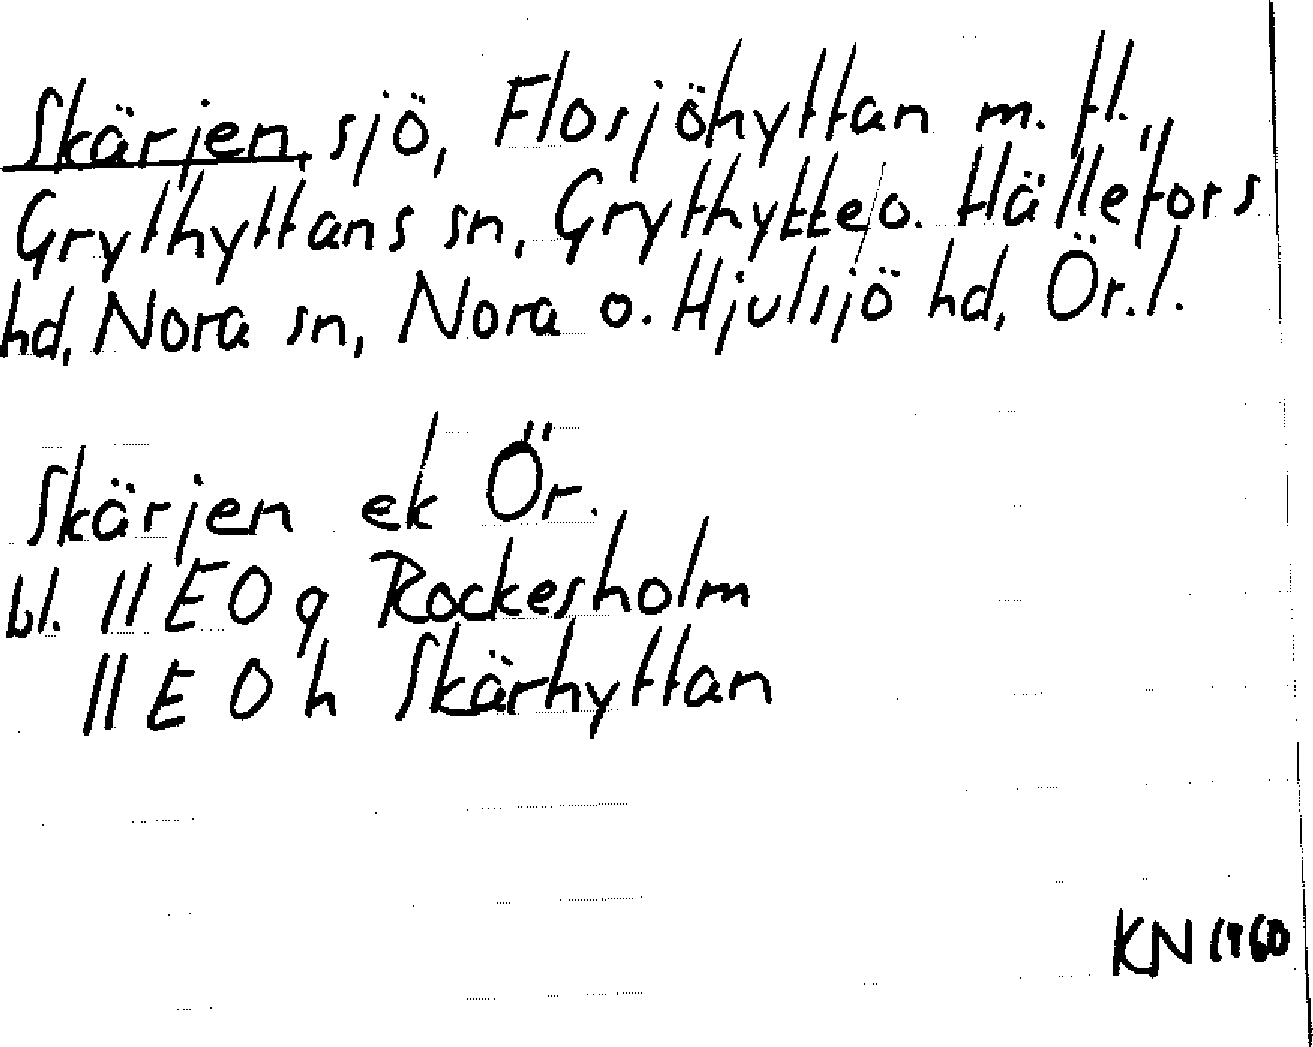 Skärjen, sjö, Flosjöhyttan m. fl.,
Grythyttans sn, Grythytte o. Hällefors
hd, Nora sn, Nora o. Hjulsjö hd, Ör. l.
Skärjen ek Ör.
bl. 11 E 0 g Rockesholm
11 E 0 h Skärhyttan
KN 1960